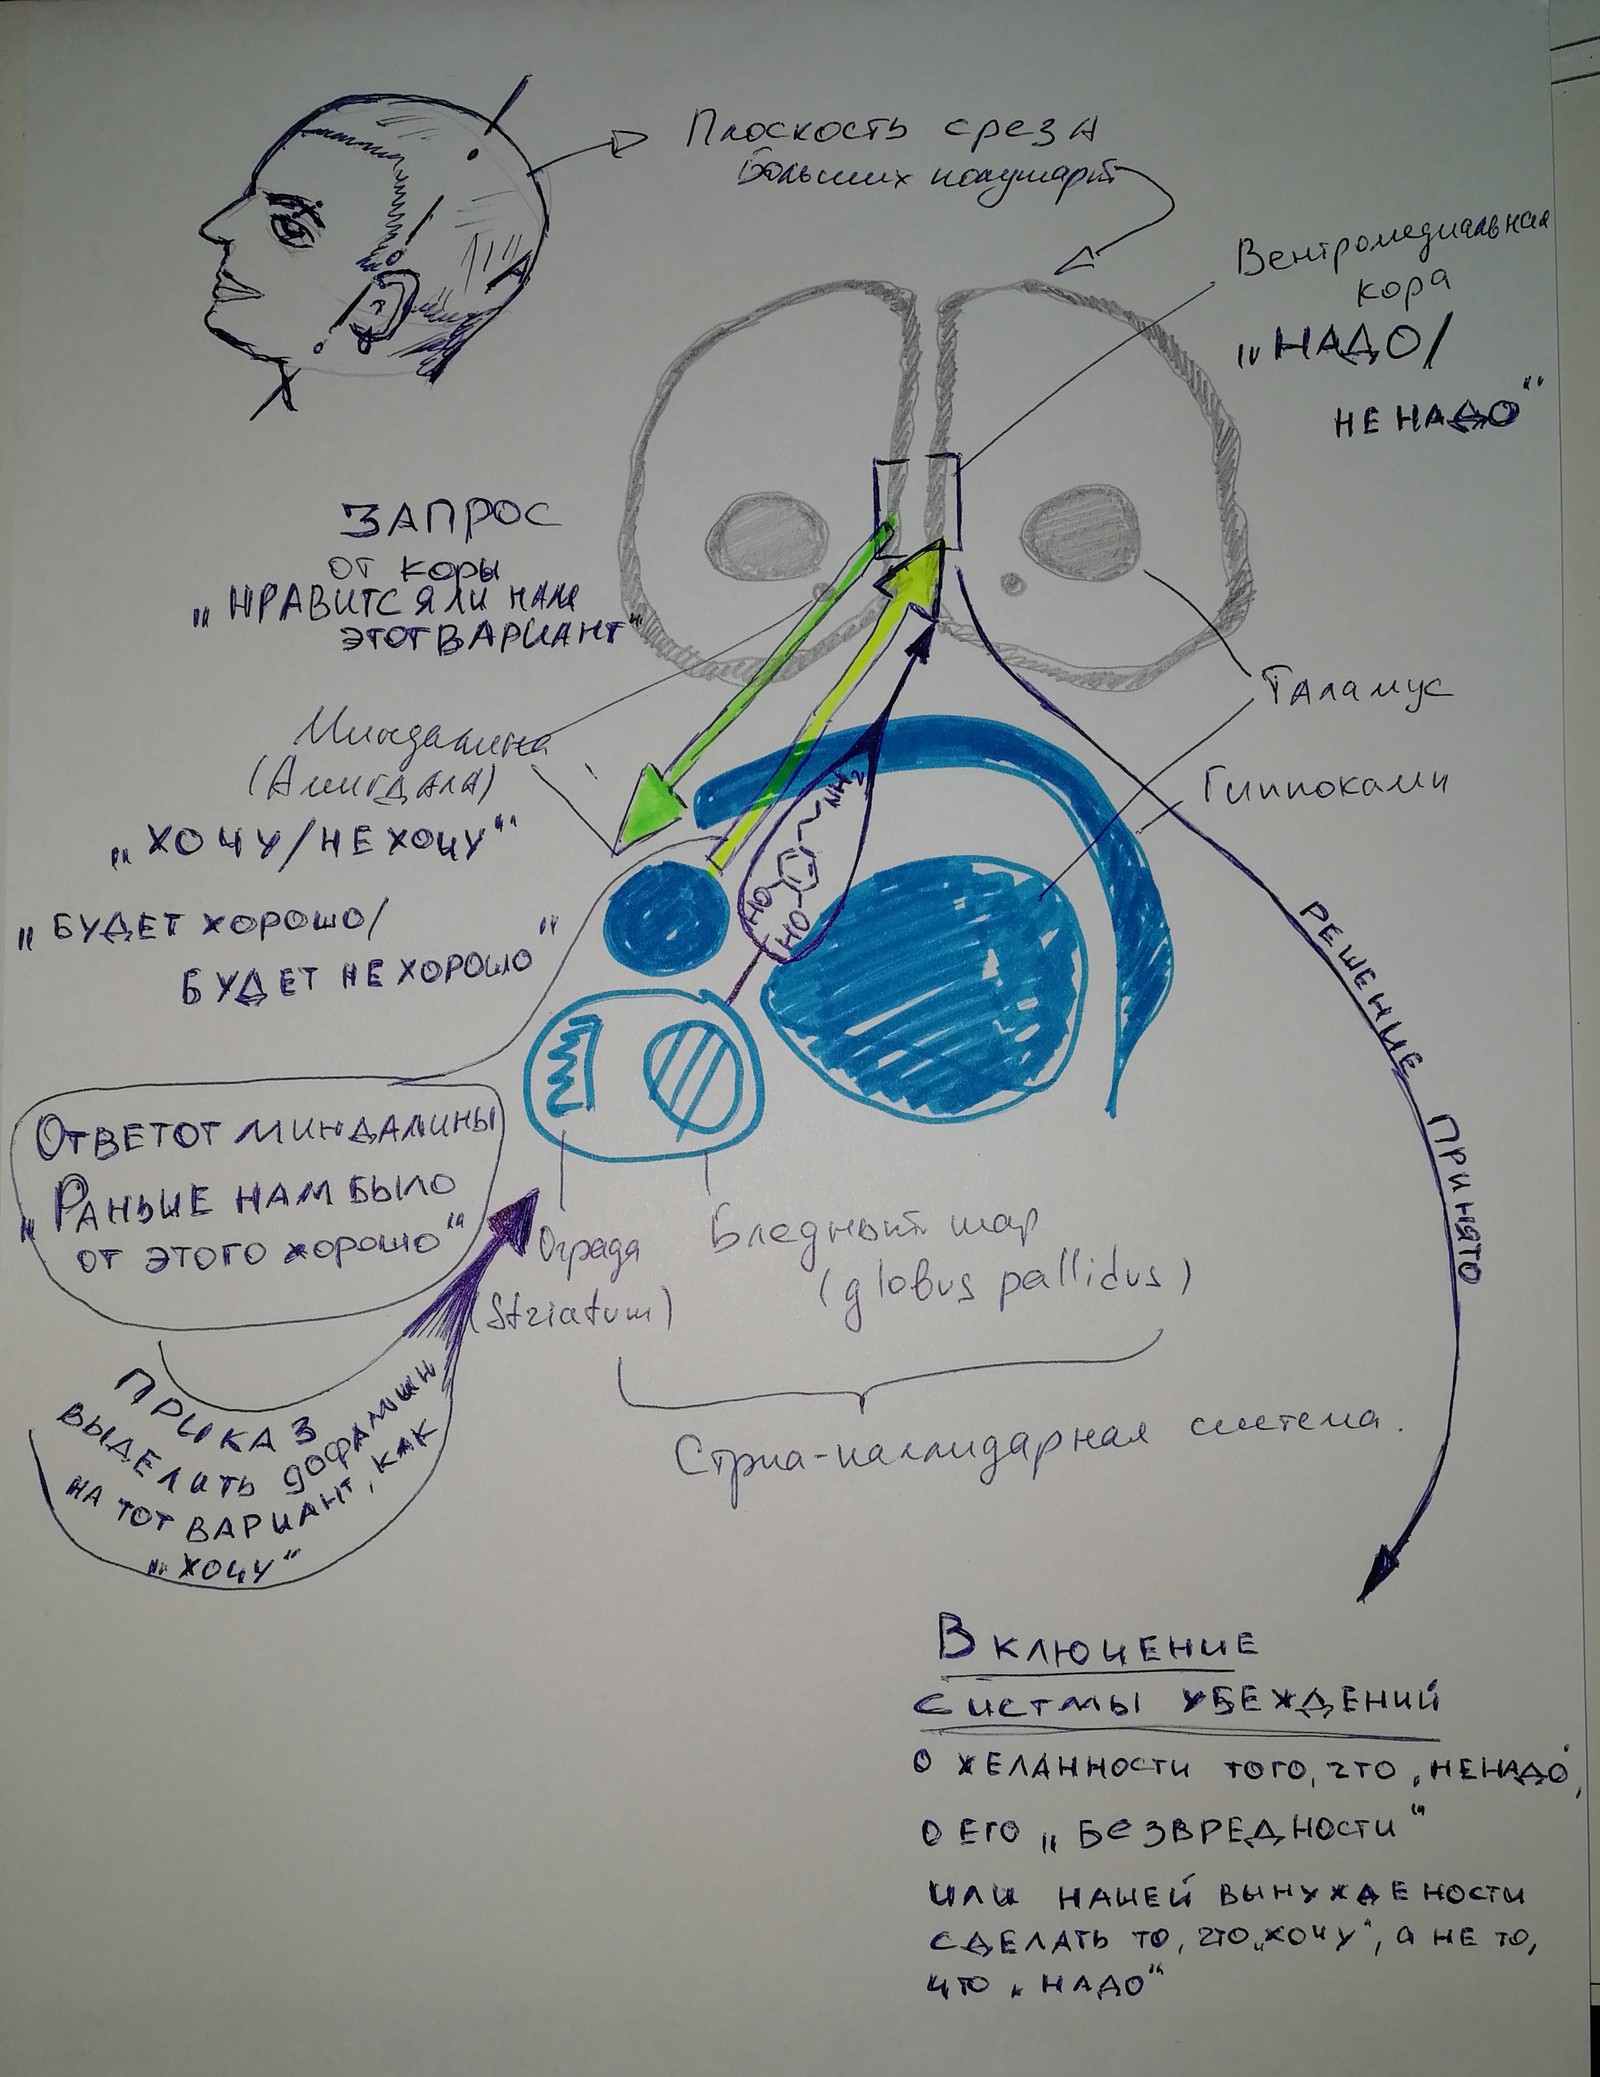 Плоскость среза
больших полушарий
Вентромедиальная
кора
„НАДО/
НЕ НАДО"
ЗАПРОС
от коры
„НРАВИТСЯ ЛИ НАМ
ЭТОТ ВАРИАНТ"
Миндалина
(Амигдала)
„ХОЧУ/НЕ ХОЧУ"
„БУДЕТ ХОРОШО/
БУДЕТ НЕ ХОРОШО"
Таламус
Гиппокамп
NH2
HO
HO
РЕШЕНИЕ ПРИНЯТО
ОТВЕТ ОТ МИНДАЛИНЫ
„РАНЬШЕ НАМ БЫЛО
ОТ ЭТОГО ХОРОШО"
Ограда
(Striatum)
Бледный шар
(globus pallidus)
Стриа-паллидарная система.
ПРИКАЗ
ВЫДЕЛИТЬ ДОФАМИН
НА ТОТ ВАРИАНТ, КАК
„ХОЧУ"
ВКЛЮЧЕНИЕ
СИСТМЫ УБЕЖДЕНИЙ
О ЖЕЛАННОСТИ ТОГО, ЧТО „НЕНАДО",
О ЕГО „БЕЗВРЕДНОСТИ"
ИЛИ НАШЕЙ ВЫНУЖДЕНОСТИ
СДЕЛАТЬ ТО, ЧТО „ХОЧУ", А НЕ ТО,
ЧТО „НАДО"